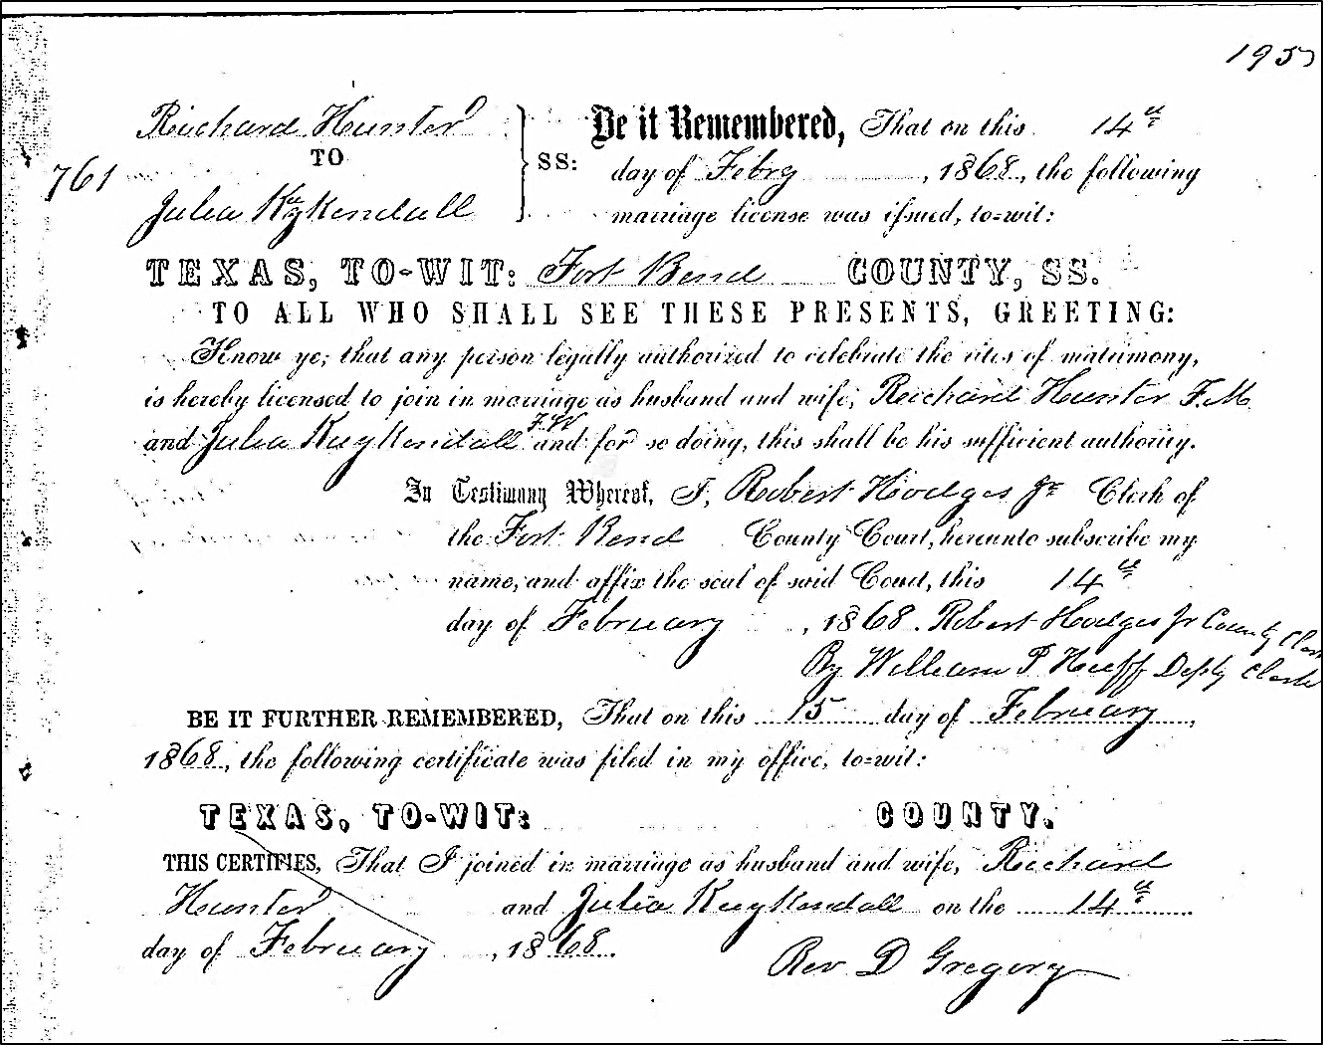 195
Richard Hunter
TO
761
Julia Kuykendall
SS:
Be it Remembered, That on this 14th
day of Febry, 1868, the following
marriage license was issued, to=wit:
TEXAS, TO-WIT: Fort Bend COUNTY, SS.
TO ALL WHO SHALL SEE THESE PRESENTS, GREETING:
Know ye, that any person legally authorized to celebrate the rites of matrimony,
is hereby licensed to join in marriage as husband and wife, Richard Hunter F.M
and Julia Kuykendall F.W and for so doing, this shall be his sufficient authority.
In Testimony Whereof, I, Robert Hodges Jr Clerk of
the Fort Bend County Court, hereunto subscribe my
name, and affix the seal of said Court, this 14th
day of February, 1868. Robert Hodges Jr County Clerk
By William P Huff Depty Clerk
BE IT FURTHER REMEMBERED, That on this 15 day of February,
1868, the following certificate was filed in my office, to=wit:
TEXAS, TO-WIT: COUNTY.
THIS CERTIFIES, That I joined in marriage as husband and wife, Richard
Hunter and Julia Kuykendall on the 14th
day of February, 1868.
Rev D Gregory